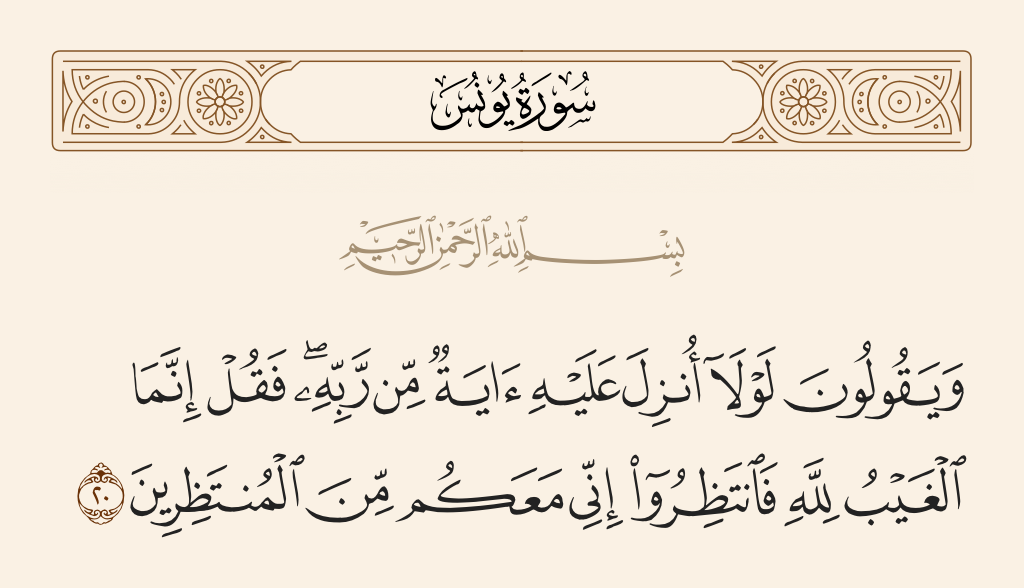 سُورَةُ يُونُسَ
بِسْمِ ٱللَّهِ ٱلرَّحْمَٰنِ ٱلرَّحِيمِ
وَيَقُولُونَ لَوْلَآ أُنزِلَ عَلَيْهِ ءَايَةٌ مِّن رَّبِّهِۦ ۖ فَقُلْ إِنَّمَا
ٱلْغَيْبُ لِلَّهِ فَٱنتَظِرُوٓا۟ إِنِّى مَعَكُم مِّنَ ٱلْمُنتَظِرِينَ ٢٠